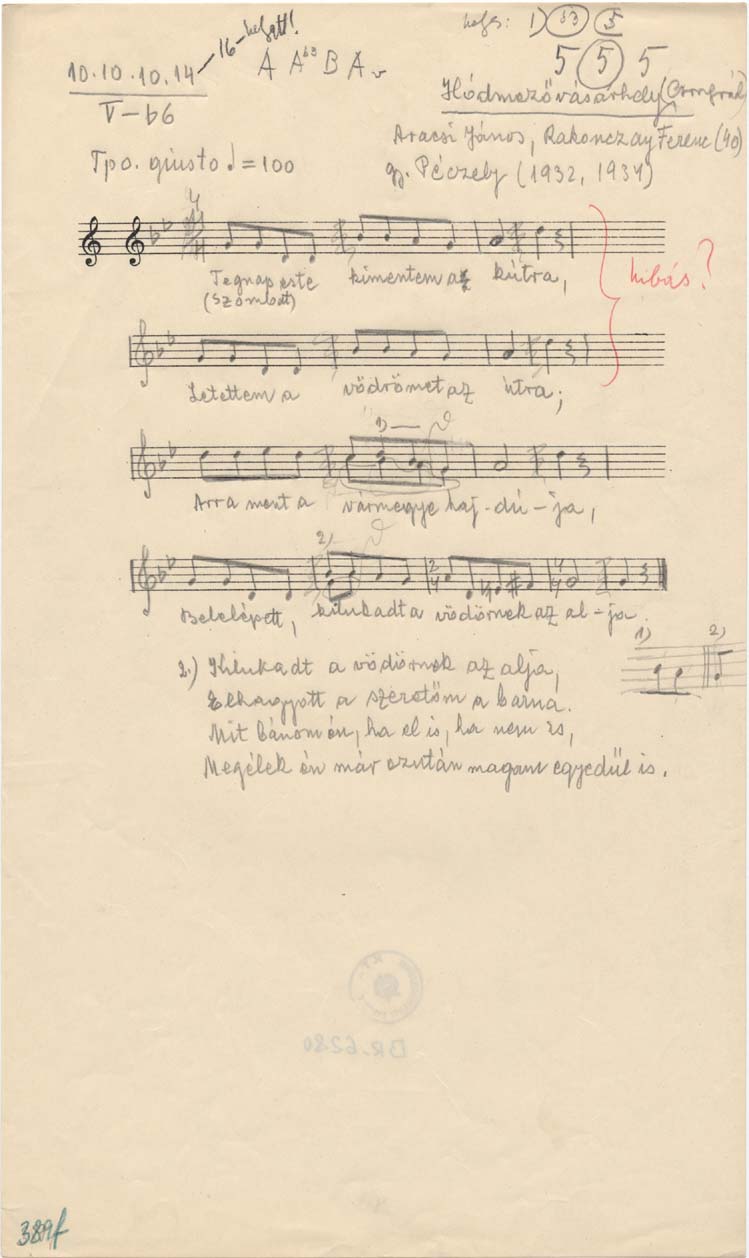 10.10.10.14 — 16 — helyett!
A A♭3 B Av
1) ♭3 5
V — ♭6
5 5 5
Hódmezővásárhely (Csongrád)
Aracsi János, Rakonczay Ferenc (40)
Tpo. giusto ♩ = 100
gy. Péczely (1932, 1934)
Tegnap este kimentem az kútra,
(Szombat)
hibás?
Letettem a vödrömet az útra;
1)
Arra ment a vármegye haj-dú-ja,
2)
2/4 4/4
Belelépett, kilukadt a vödörnek az al-ja.
1) 2)
2.) Kilukadt a vödörnek az alja,
Elhagyott a szeretőm a barna.
Mit bánom én, ha el is, ha nem is,
Megélek én már azután magam egyedül is.
BR-6280
389f